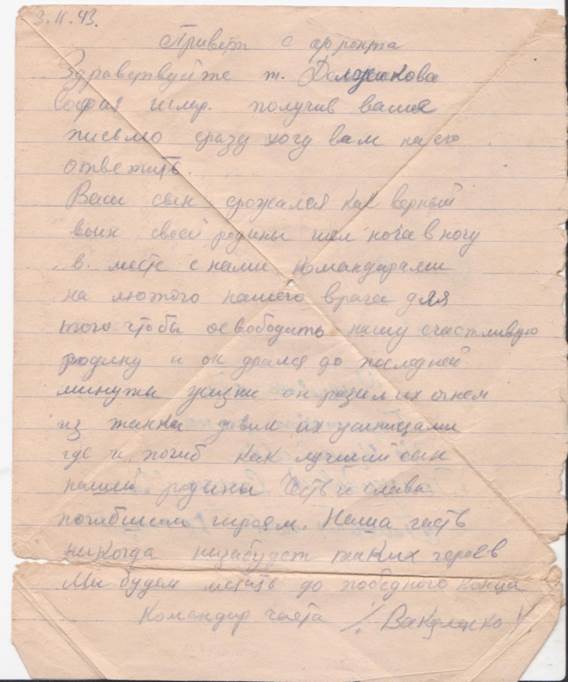 3.11.43.
Привет с фронта
Здравствуйте т. Должикова
София получив ваше
письмо сразу хочу вам на его
ответить.
Ваш сын сражался как верный
воин своей родины шел нога в ногу
в месте с нами командирами
на лютого нашего врага для
того чтобы освободить нашу счастливую
родину и он дрался до последней
минуты жизни он разил их огнем
из танка давил их гусеницами
где и погиб как лучший сын
нашей родины Честь и слава
погибшим героям. Наша часть
никогда незабудет таких героев
Мы будем мстить до победного конца
Командир части Вакуленко